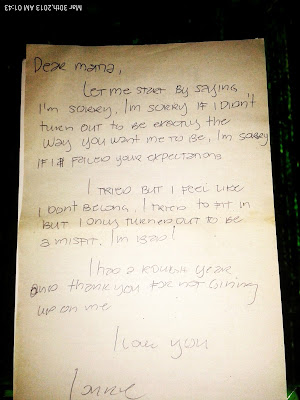 Mar 30th,2013 AM 01:43
Dear mama,
Let me start by saying
I'm sorry, I'm sorry if I didn't
turn out to be exactly the
way you want me to be, I'm sorry
if I failed your expectations
I tried but I feel like
I dont belong, I tried to fit in
but I only turned out to be
a misfit. I'm
I had a rough year
and thank you for not giving
up on me
I love you